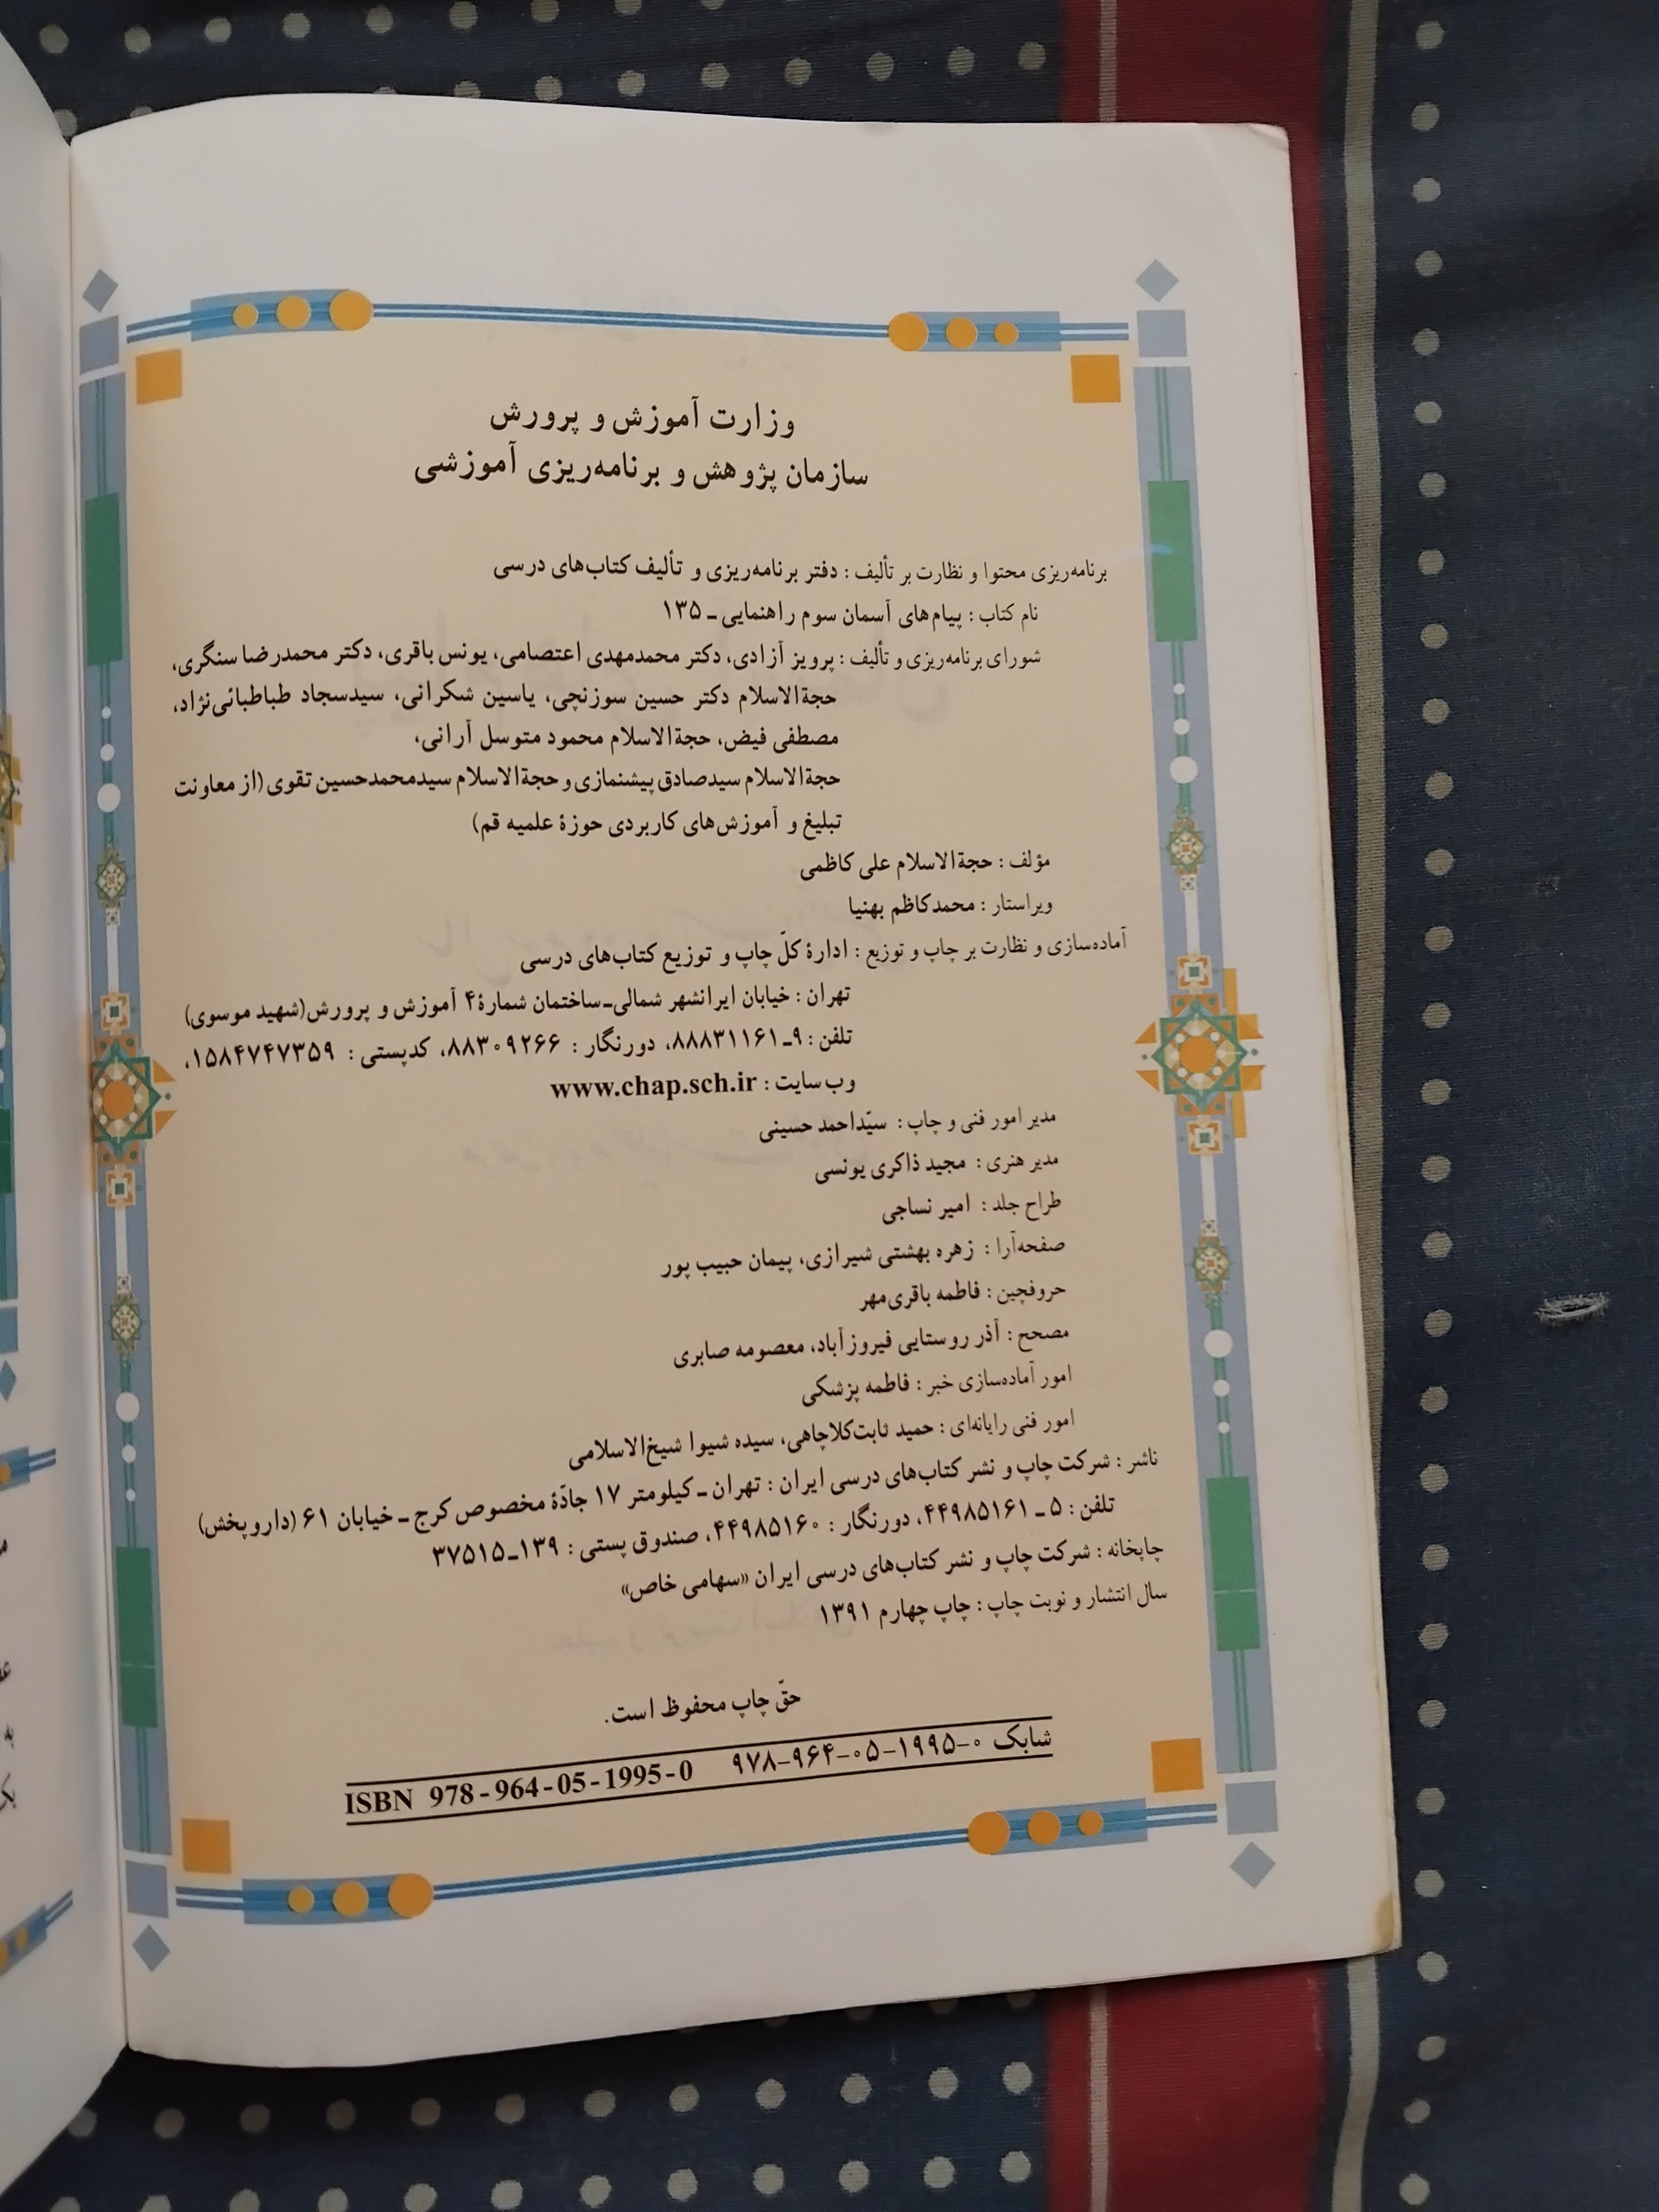 وزارت آموزش و پرورش
سازمان پژوهش و برنامه‌ریزی آموزشی
برنامه‌ریزی محتوا و نظارت بر تألیف : دفتر برنامه‌ریزی و تألیف کتاب‌های درسی
نام کتاب : پیام‌های آسمان سوم راهنمایی ـ ۱۳۵
شورای برنامه‌ریزی و تألیف : پرویز آزادی، دکتر محمدمهدی اعتصامی، یونس باقری، دکتر محمدرضا سنگری،
حجةالاسلام دکتر حسین سوزنچی، یاسین شکرانی، سیدسجاد طباطبائی‌نژاد،
مصطفی فیض، حجةالاسلام محمود متوسل آرانی،
حجةالاسلام سیدصادق پیشنمازی و حجةالاسلام سیدمحمدحسین تقوی (از معاونت
تبلیغ و آموزش‌های کاربردی حوزهٔ علمیه قم)
مؤلف : حجةالاسلام علی کاظمی
ویراستار : محمدکاظم بهنیا
آماده‌سازی و نظارت بر چاپ و توزیع : ادارهٔ کلّ چاپ و توزیع کتاب‌های درسی
تهران : خیابان ایرانشهر شمالی ـ ساختمان شمارهٔ ۴ آموزش و پرورش (شهید موسوی)
تلفن : ۹ـ۸۸۸۳۱۱۶۱، دورنگار : ۸۸۳۰۹۲۶۶، کدپستی : ۱۵۸۴۷۴۷۳۵۹،
وب سایت : www.chap.sch.ir
مدیر امور فنی و چاپ : سیّداحمد حسینی
مدیر هنری : مجید ذاکری یونسی
طراح جلد : امیر نساجی
صفحه‌آرا : زهره بهشتی شیرازی، پیمان حبیب پور
حروفچین : فاطمه باقری‌مهر
مصحح : آذر روستایی فیروزآباد، معصومه صابری
امور آماده‌سازی خبر : فاطمه پزشکی
امور فنی رایانه‌ای : حمید ثابت‌کلاچاهی، سیده شیوا شیخ‌الاسلامی
ناشر : شرکت چاپ و نشر کتاب‌های درسی ایران : تهران ـ کیلومتر ۱۷ جادّهٔ مخصوص کرج ـ خیابان ۶۱ (داروپخش)
تلفن : ۵ ـ ۴۴۹۸۵۱۶۱، دورنگار : ۴۴۹۸۵۱۶۰، صندوق پستی : ۱۳۹ـ۳۷۵۱۵
چاپخانه : شرکت چاپ و نشر کتاب‌های درسی ایران «سهامی خاص»
سال انتشار و نوبت چاپ : چاپ چهارم ۱۳۹۱
حقّ چاپ محفوظ است.
شابک ۰-۱۹۹۵-۰۵-۹۶۴-۹۷۸ ISBN 978-964-05-1995-0